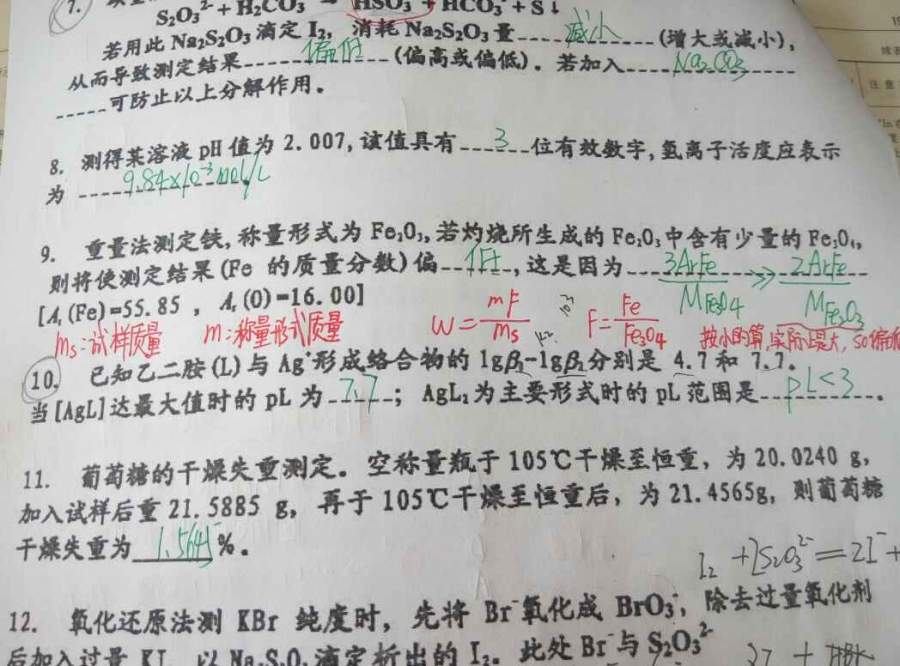 7.
S₂O₃²⁻ + H₂CO₃ HSO₃⁻ + HCO₃⁻ + S↓
若用此 Na₂S₂O₃ 滴定 I₂, 消耗 Na₂S₂O₃ 量 减小 (增大或减小),
从而导致测定结果 偏低 (偏高或偏低)。若加入 Na₂CO₃
可防止以上分解作用。
8. 测得某溶液 pH 值为 2.007, 该值具有 3 位有效数字, 氢离子活度应表示
为 9.84×10⁻³mol/L
9. 重量法测定铁, 称量形式为 Fe₂O₃, 若灼烧所生成的 Fe₂O₃ 中含有少量的 Fe₃O₄,
则将使测定结果(Fe 的质量分数)偏 低, 这是因为 3ArFe/MFe₃O₄ >> 2ArFe/MFe₂O₃
[Aᵣ(Fe)=55.85 , Aᵣ(O)=16.00]
ms:试样质量 m:称量形式质量 W=mF/ms F=Fe/Fe₃O₄ 按小的算,实际上是大, so偏低
10. 已知乙二胺(L)与 Ag⁺形成络合物的 lgβ₁-lgβ₂分别是 4.7 和 7.7。
当[AgL]达最大值时的 pL 为 7.7 ; AgL₂为主要形式时的 pL 范围是 pL<3 。
11. 葡萄糖的干燥失重测定。空称量瓶于 105℃干燥至恒重, 为 20.0240 g,
加入试样后重 21.5885 g, 再于 105℃干燥至恒重后, 为 21.4565g, 则葡萄糖
干燥失重为 1.5645 %。
I₂ + 2S₂O₃²⁻ = 2I⁻ +
12. 氧化还原法测 KBr 纯度时, 先将 Br⁻氧化成 BrO₃⁻, 除去过量氧化剂
后加入过量 KI, 以 Na₂S₂O₃滴定析出的 I₂。此处 Br⁻与 S₂O₃²⁻